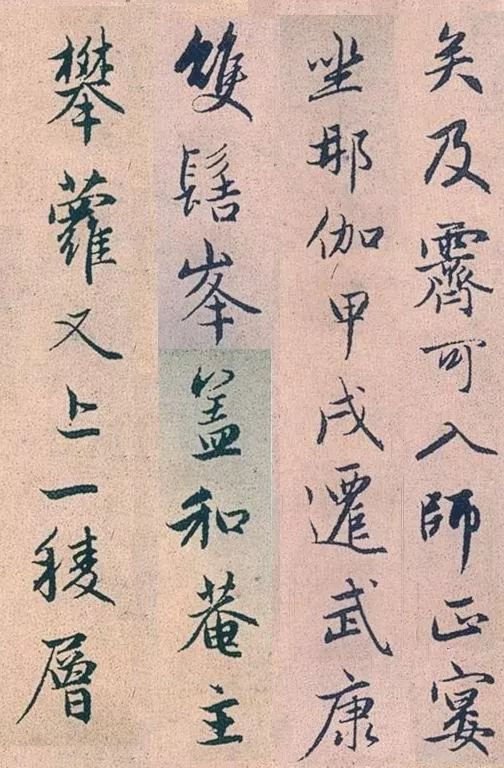 矣及霽可入師正宴
坐那伽甲戌遷武康
雙髻峯蓋和菴主
攀蘿又上一稜層